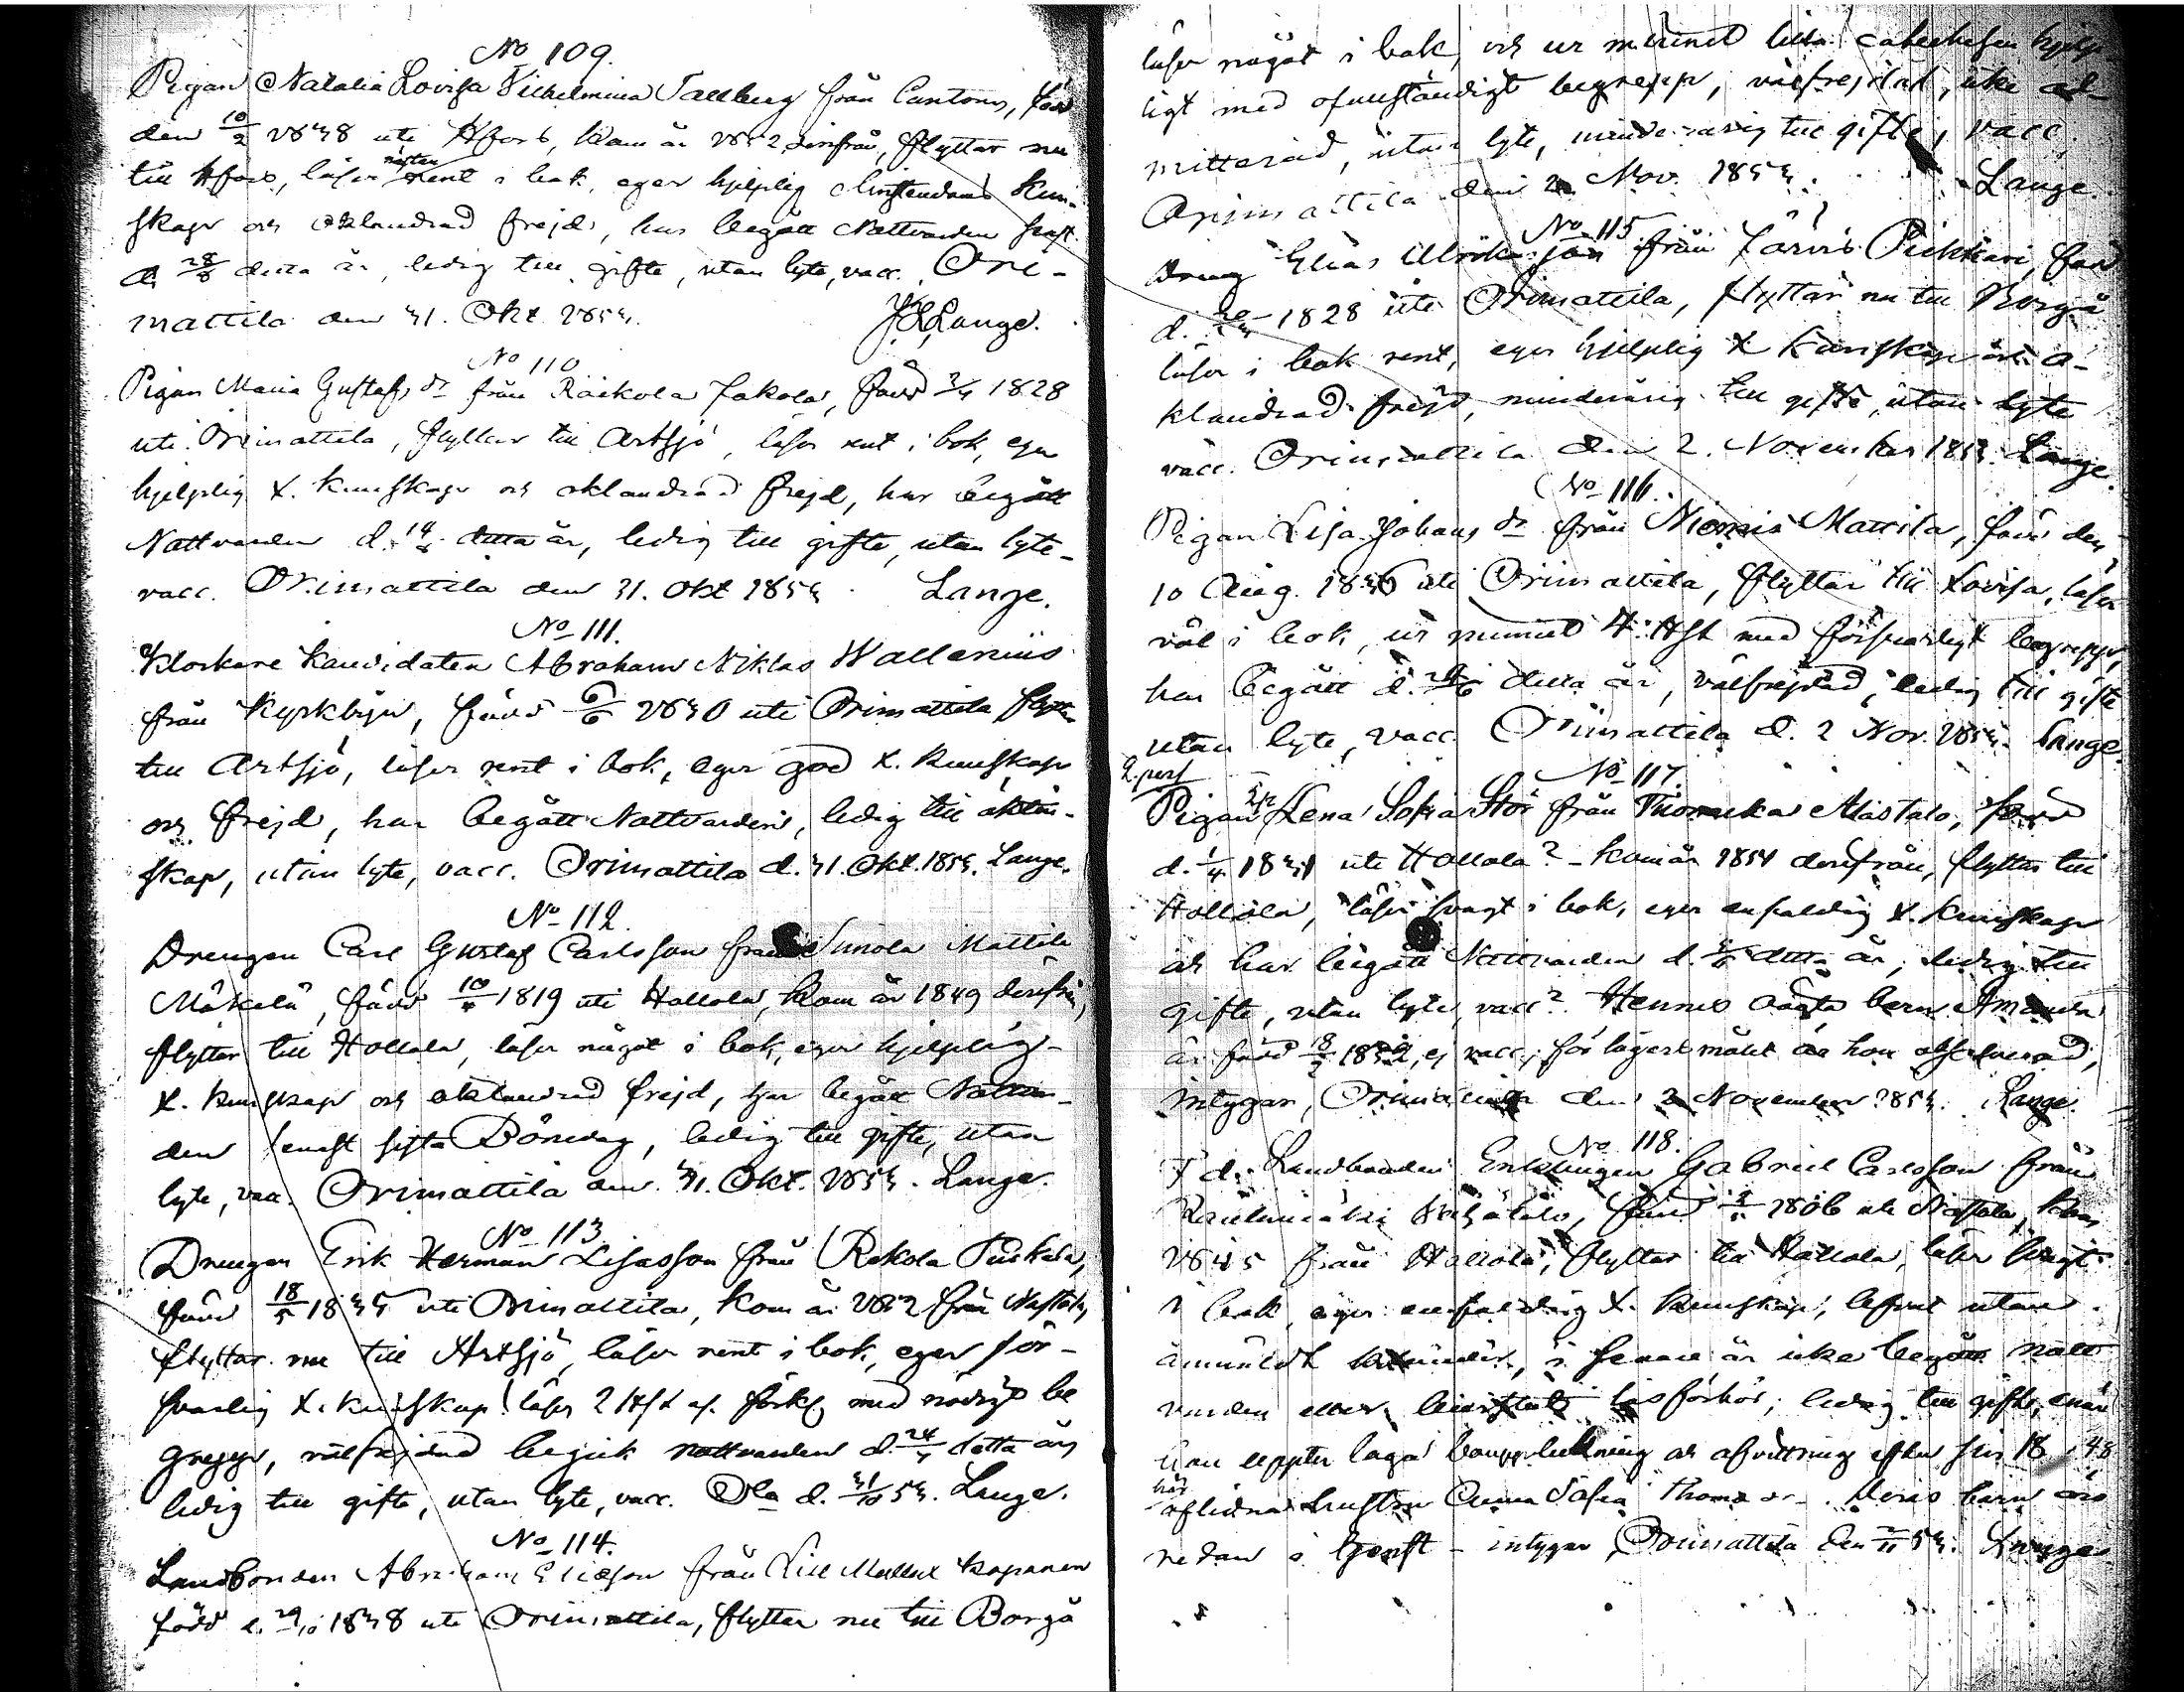 No 109.
Pigan Natalia Lovisa Vilhelmina Tallberg från Cantons, född
den 10/2 1838 uti Hfors, kom år 1852 derifrån, flyttar nu
till Hfors, läser nästan rent i bok, eger hjelplig Christendoms kun-
skap och oklandrad frejd, har begått Nattvarden sist
d. detta år, ledig till gifte, utan lyte, vacc. Ori-
mattila den 31. Okt 1853. Lange.
No 110
Pigan Maria Gustafs dr från Räikola Jakola, född 1828
uti Orimattila, flyttar till Artsjö, läser rent i bok, eger
hjelplig X. kunskap och oklandrad frejd, har begått
Nattvarden d. detta år, ledig till gifte, utan lyte
vacc. Orimattila den 31. Okt 1853 Lange.
No 111.
Klockare Kandidaten Abraham Niklas Wallenius
från Kyrkbyn, född 6/6 1830 uti Orimattila flyttar
till Artsjö, läser rent i bok, eger god X. kunskap
och frejd, har begått Nattvarden, ledig till äkten-
skap, utan lyte, vacc. Orimattila d. 31. Okt. 1853. Lange.
No 112.
Drengen Carl Gustaf Carlsson från Sunola Mattila
Mäkelä, född 1819 uti Hollola, kom år 1849 derifrån,
flyttar till Hollola, läser något i bok, eger hjelplig
X. kunskap och oklandrad frejd, har begått Nattvar-
den senast sista Bönedag, ledig till gifte, utan
lyte, vacc. Orimattila den 31. Okt. 1853. Lange.
No 113
Drengen Erik Herman Lisasson från Rekola Tuskala,
född 18/5 1835 uti Orimattila, kom år 1852 från Nastola,
flyttar nu till Artsjö, läser rent i bok, eger för-
svarlig X. kunskap, läser 2 Hst af förkl. med nödigt be
grepp, välfrejdad begick nattvarden d. 24 detta år,
ledig till gifte, utan lyte, vacc. Ola d. 31/10 53. Lange.
No 114.
Landbonden Abraham Eliasson från Kopanen
född d. 1838 uti Orimattila, flyttar nu till Borgå
läser något i bok, och ur minnet lilla catechesen hjelp-
ligt med ofullständigt begrepp, välfrejdad, icke ad-
mitterad, utan lyte, minderårig till gifte, vacc.
Orimattila den 2. Nov. 1853. Lange.
No 115.
Dreng Elias Ulrikasson från Järvis Pickkari, född
d. 1828 uti Orimattila, flyttar nu till Borgå
läser i bok rent, eger hjelplig X kunskap och o-
klandrad frejd, minderårig till gifte, utan lyte
vacc. Orimattila den 2. November 1853. Lange.
No 116.
Pigan Lisa Johans dr från Niemis Mattila, född den
10 Aug. 1836 uti Orimattila, flyttar till Lovisa, läser
väl i bok, ur minnet 4. Hst med försvarligt begrepp,
har begått d. detta år, välfrejdad, ledig till gifte
utan lyte, vacc. Orimattila d. 2 Nov. 1853. Lange.
2. pers No 117.
Pigan Lena Sofia Stör från Alastalo, född
d. uti Hollola? kom år 1851 derifrån, flyttar till
Hollola, läser svagt i bok, eger enfaldig X. kunskap
och har begått Nattvarden d. detta år, ledig till
gifte, utan lyte, vacc? Hennes oägta barn Amanda
är född 18 1852, ej vacc, för lägersmålet är hon absolverad,
intygar, Orimattila den 2 November 1853. Lange.
No 118.
F d. Landbonden Enklingen Gabriel Carlsson från
född 1806 uti Nastola, kom
1845 från Hollola, flyttar till Hollola, läser svagt
i bok, eger enfaldig X. kunskap, i senare år icke begått natt
varden eller läsförhör, ledig till gifte, enär
han uppter laga bouppteckning och afvittring efter sin 18 48
här aflidna hustru Anna Sofia Thoms dr. Deras barn äro
redan i tjenst - intygar, Orimattila den 2/11 53. Lange